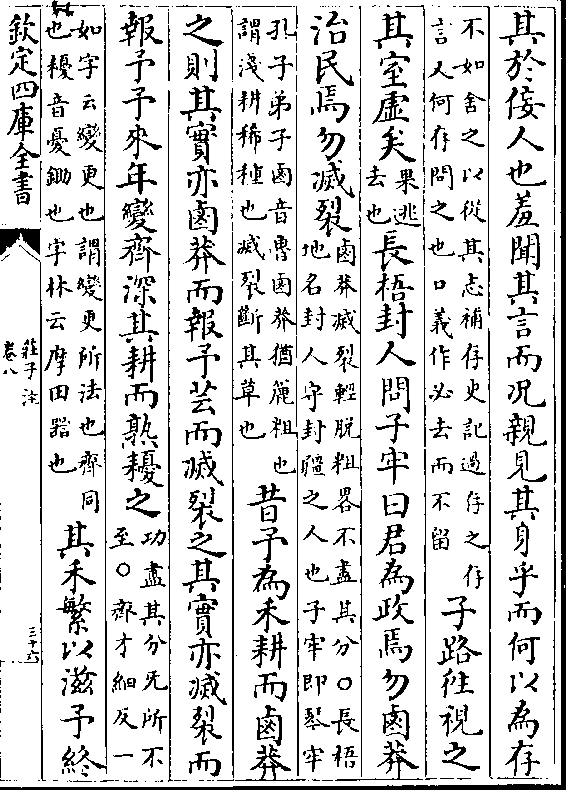 其於佞人也羞聞其言而况親見其身乎而何以為存
不如舍之以從其志補存史記過存之存
言人何存問之也口義作必去而不留
子路徃視之
其室虛矣
果逃
去也
長梧封人問子牢曰君為政焉勿鹵莽
治民焉勿滅裂
鹵莽滅裂輕脱粗畧不盡其分○長梧
地名封人守封疆之人也子牢即琴牢
孔子弟子鹵音魯鹵莽猶麄粗也
謂淺耕稀種也滅裂斷其草也
昔予為禾耕而鹵莽
之則其實亦鹵莽而報予芸而滅裂之其實亦滅裂而
報予予來年變齊深其耕而熟耰之
功盡其分旡所不
至○齊才細反一
如字云變更也謂變更所法也齊同
也耰音憂鋤也字林云摩田器也
其禾繁以滋予終
欽定四庫全書
莊子注
卷八
三十六